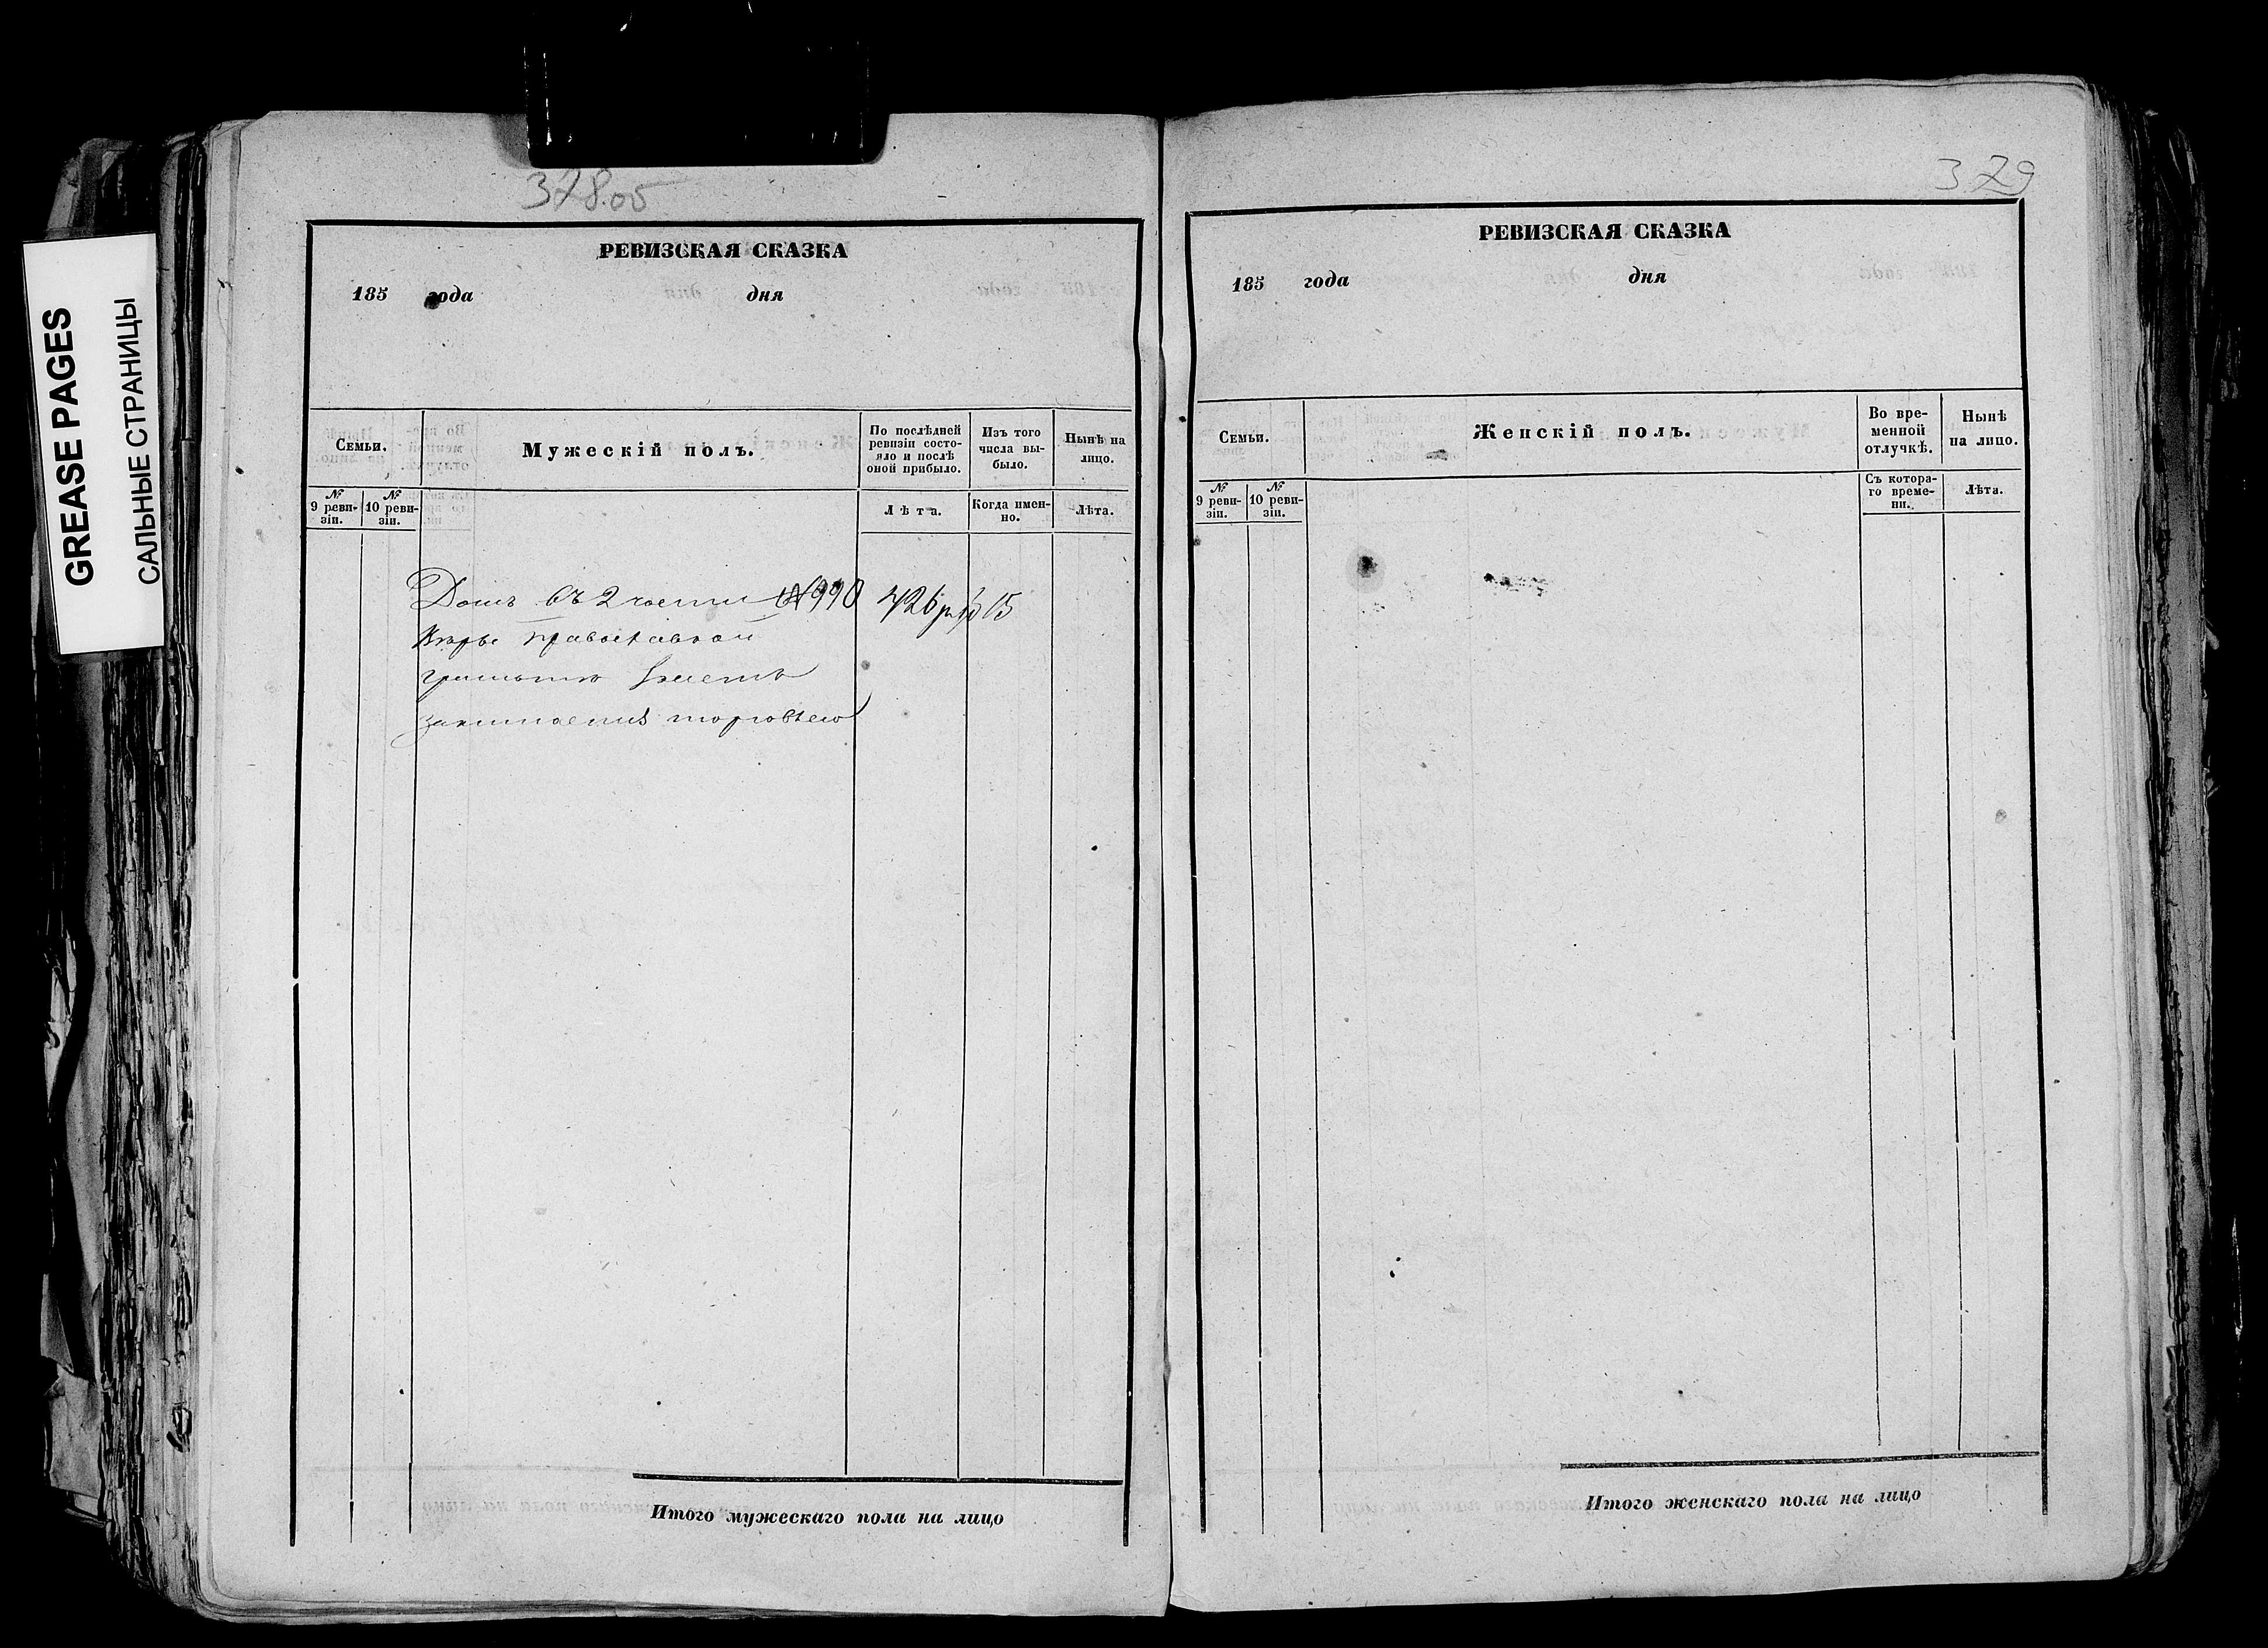 GREASE PAGES
САЛЬНЫЕ СТРАНИЦЫ
378об
РЕВИЗСКАЯ СКАЗКА
185 года дня
Семьи.
Мужескій полъ.
По послѣдней ревизіи состо-
яло и послѣ
оной прибыло.
Изъ того
числа вы-
было.
Нынѣ на
лицо.
№ 9 реви-
зіи.
№ 10 реви-
зіи.
Лѣта.
Когда имен-
но.
Лѣта.
Домъ въ 2 части №990 426 р 15
Вѣры православной
грамотѣ знаетъ
занимается торговлею
Итого мужескаго пола на лицо
379
РЕВИЗСКАЯ СКАЗКА
185 года дня
Семьи.
Женскій полъ.
Во вре-
менной
отлучкѣ.
Нынѣ
на лицо.
№ 9 реви-
зіи.
№ 10 реви-
зіи.
Съ котора-
го време-
ни.
Лѣта.
Итого женскаго пола на лицо